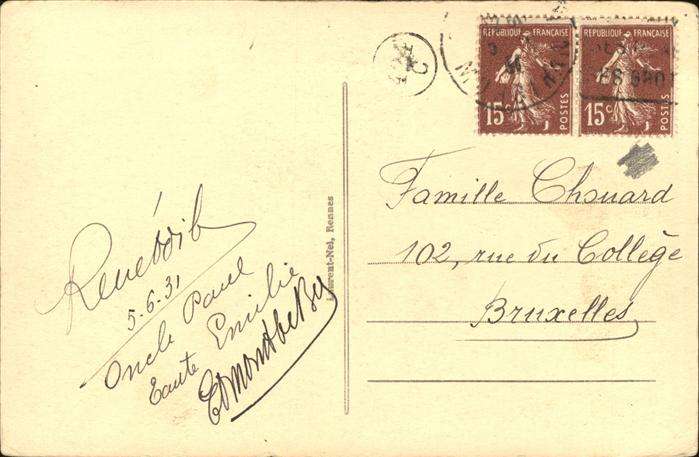 RÉPUBLIQUE FRANÇAISE
15c
POSTES
RÉPUBLIQUE FRANÇAISE
15c
POSTES
Famille Chouard
102, rue du Collège
Bruxelles
5-6.31
Oncle Paul
Tante Emilie
Laurent-Nel, Rennes